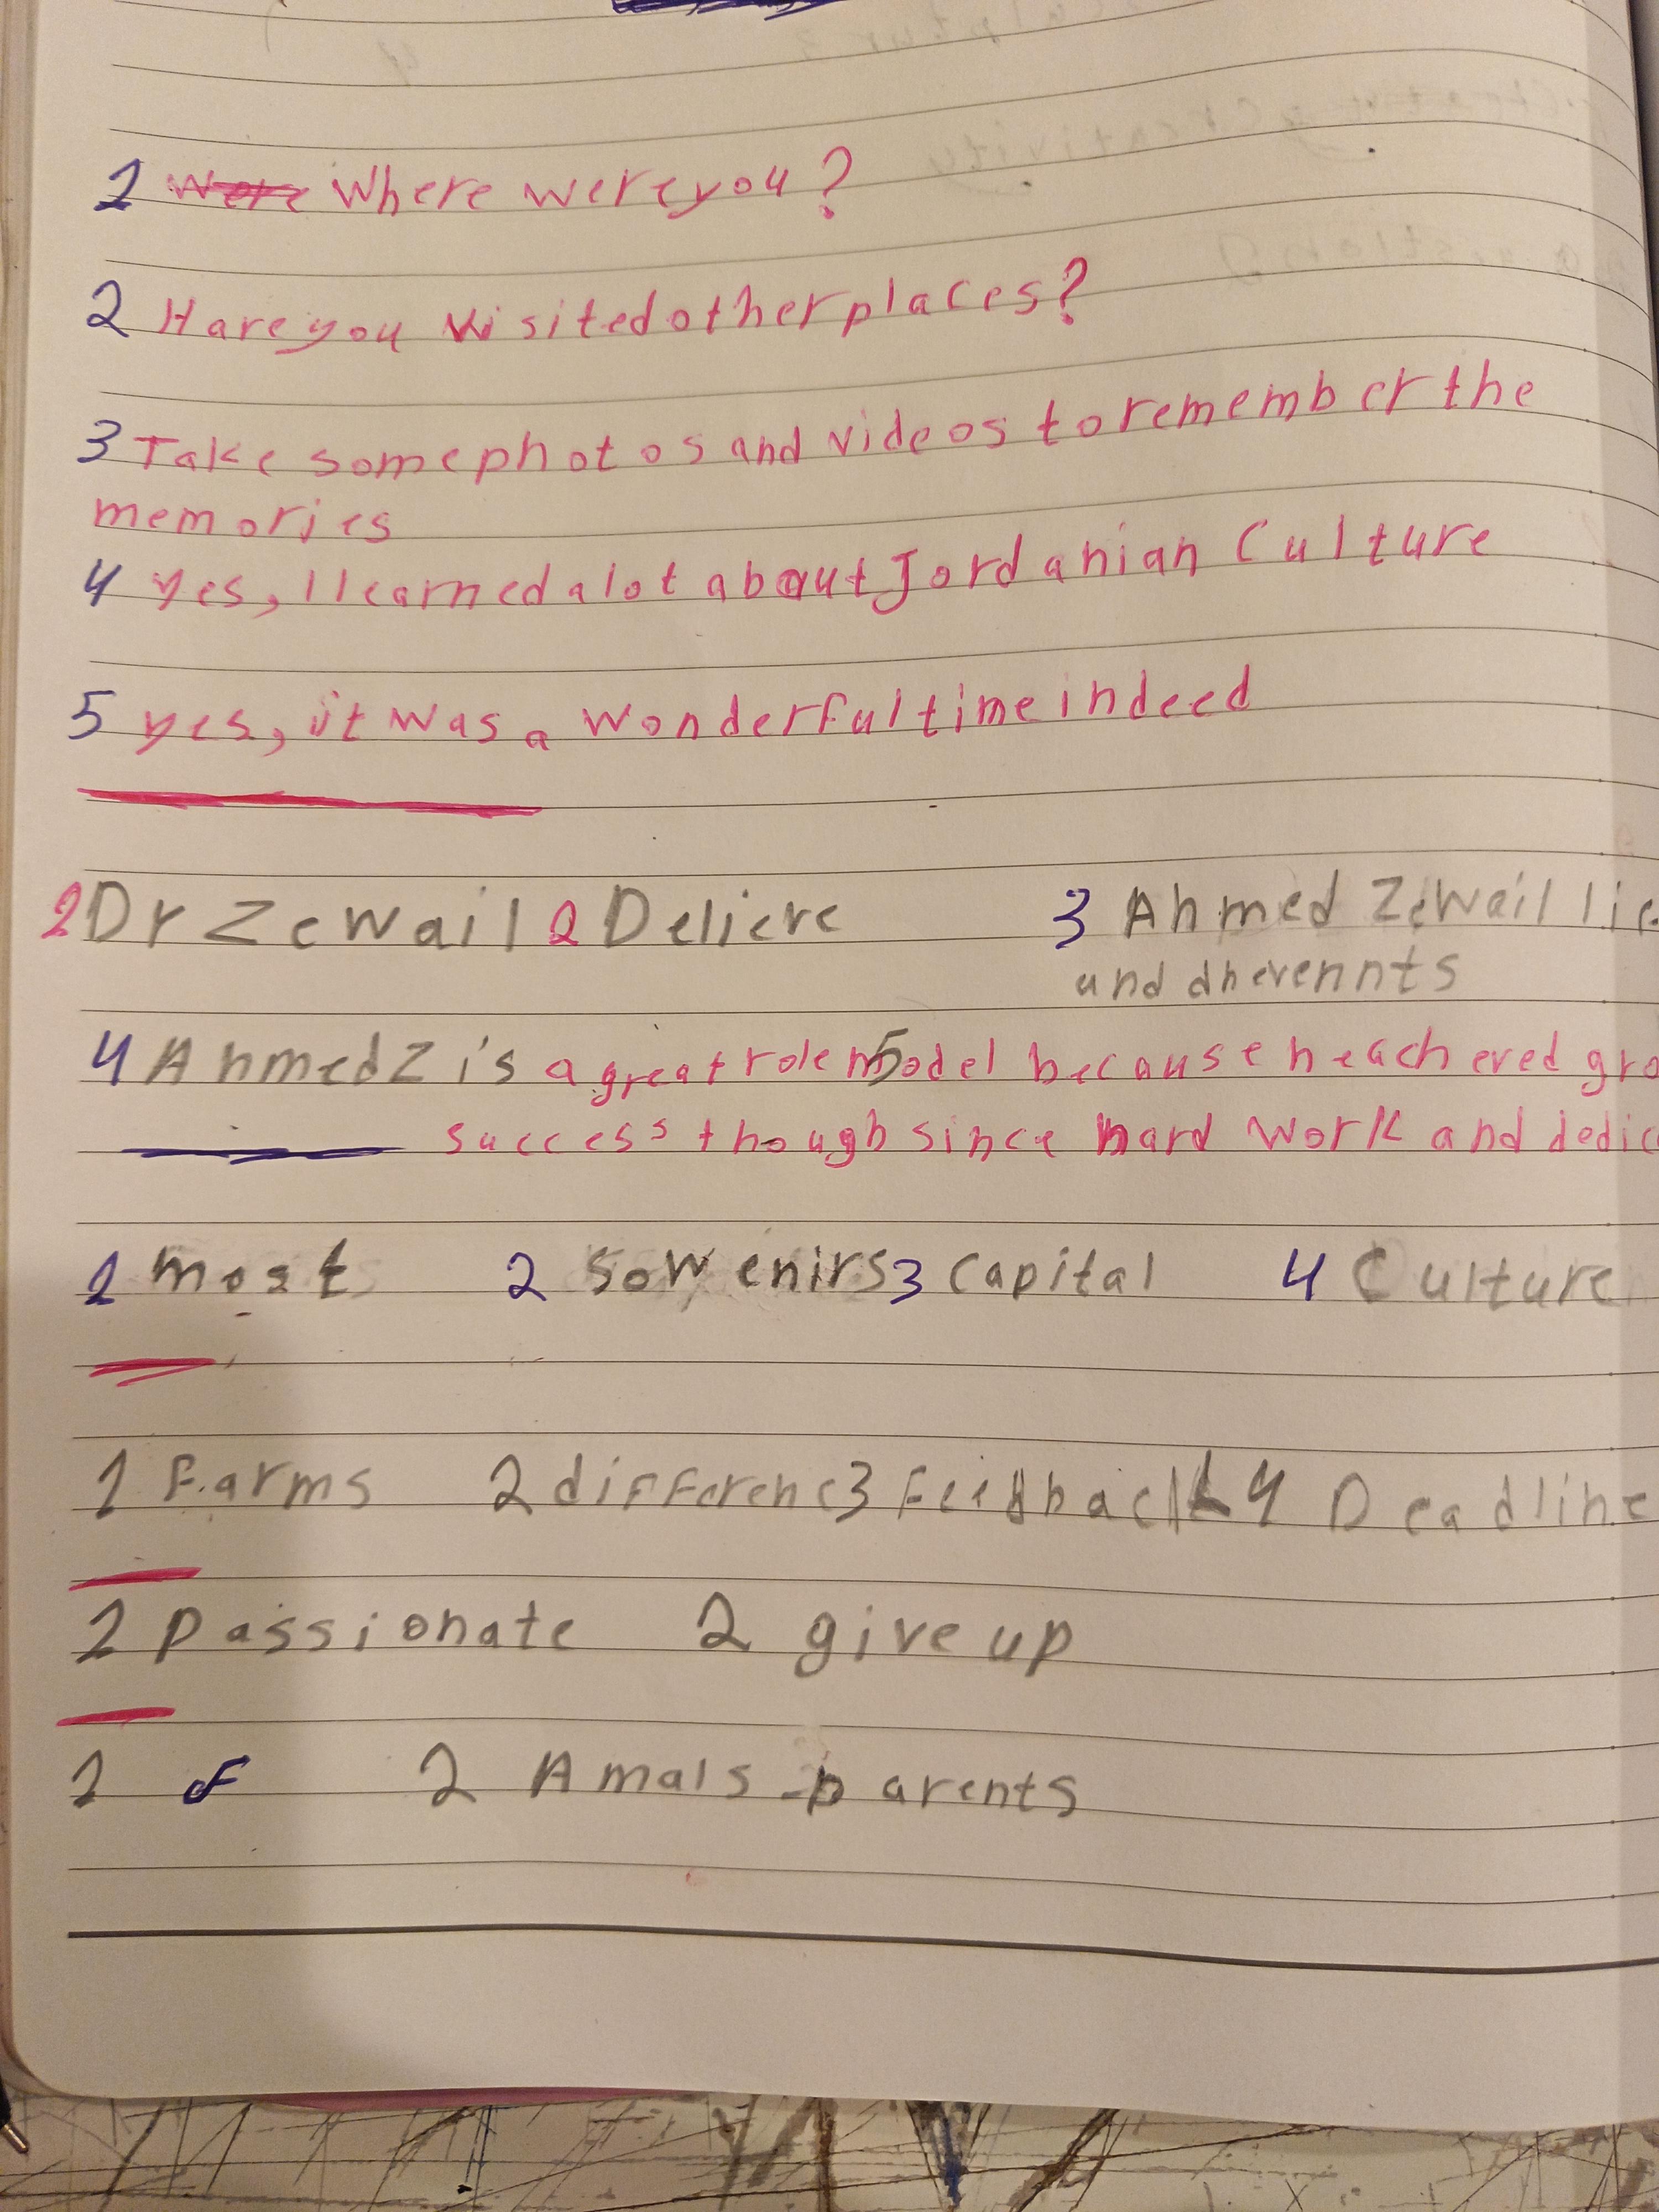 1 Where were you?
2 Hare you visited other places?
3 Take some photos and videos to remember the
memories
4 yes, I learned a lot about Jordanian Culture
5 yes, it was a wonderful time indeed
2 Dr Zewail 2 Delicre 3 Ahmed Zewail lie
and dhevennts
4 Ahmed Z is a great role model because heachered gra
success though since hard work and dedic
1 most 2 Sowenirs 3 Capital 4 Culture
1 Farms 2 differenc 3 Feedback 4 Deadline
2 passionate 2 give up
2 of 2 Amals parents